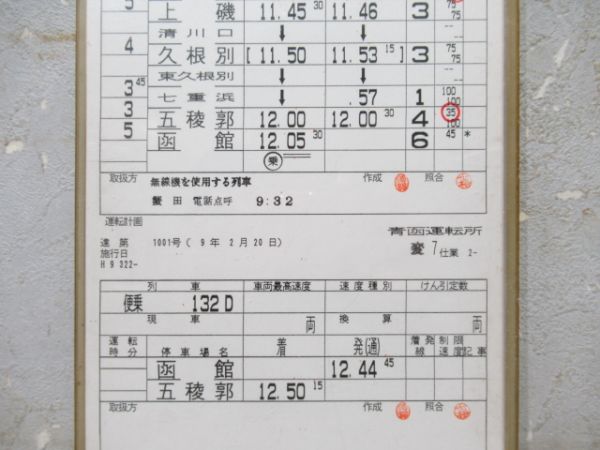 5 上磯 11.45 30 11.46 3 75 75
清川口 ↓ ↓ -- --
4 久根別 [ 11.50 11.53 15 ] 3 75 75
東久根別 ↓ ↓ -- --
3 45 七重浜 ↓ .57 1 100 100
3 五稜郭 12.00 12.00 30 4 35 100
5 函館 12.05 30 6 45 *
乗
取扱方 無線機を使用する列車 作成 照合
蟹田 電話点呼 9:32
運転計画 青函運転所
達第 1001号( 9年 2月 20日) 変7仕業 2-
施行日
H 9 322-
列車 車両最高速度 速度種別 けん引定数
便乗 132D
現車 両 換算 両
運転時分 停車場名 着 発(通) 着発線 制限速度 記事
函館 12.44 45
五稜郭 12.50 15
取扱方 作成 照合